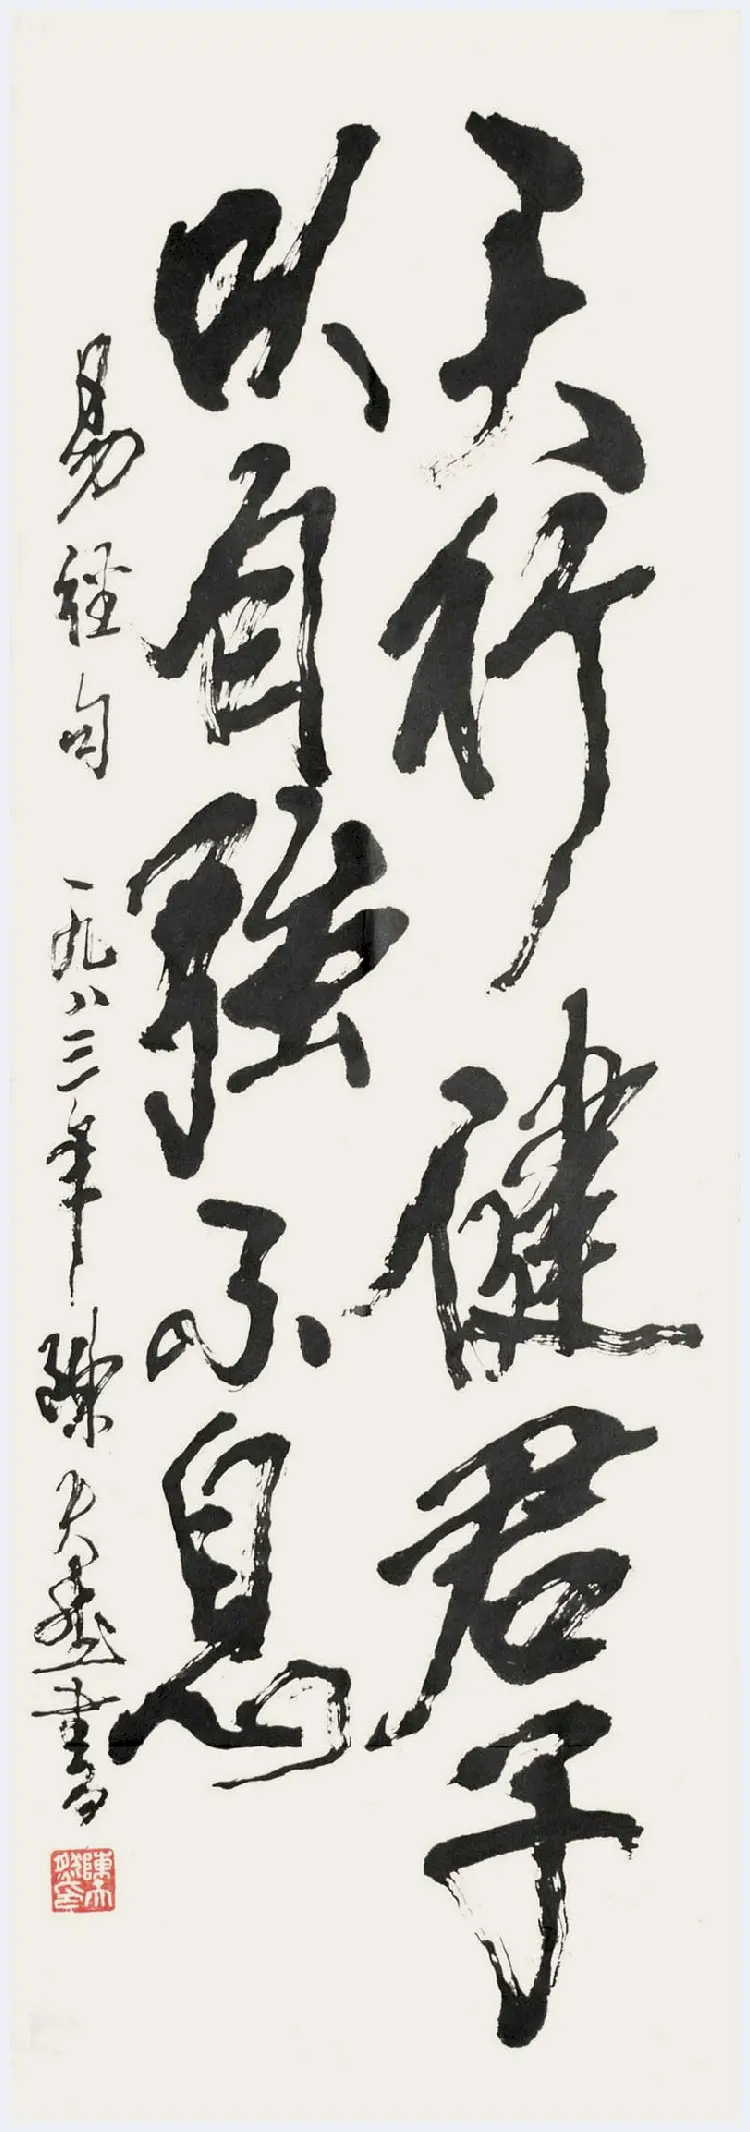 天行健君子
以自強不息
易經句 一九八三年 陳天然書
陳天然印